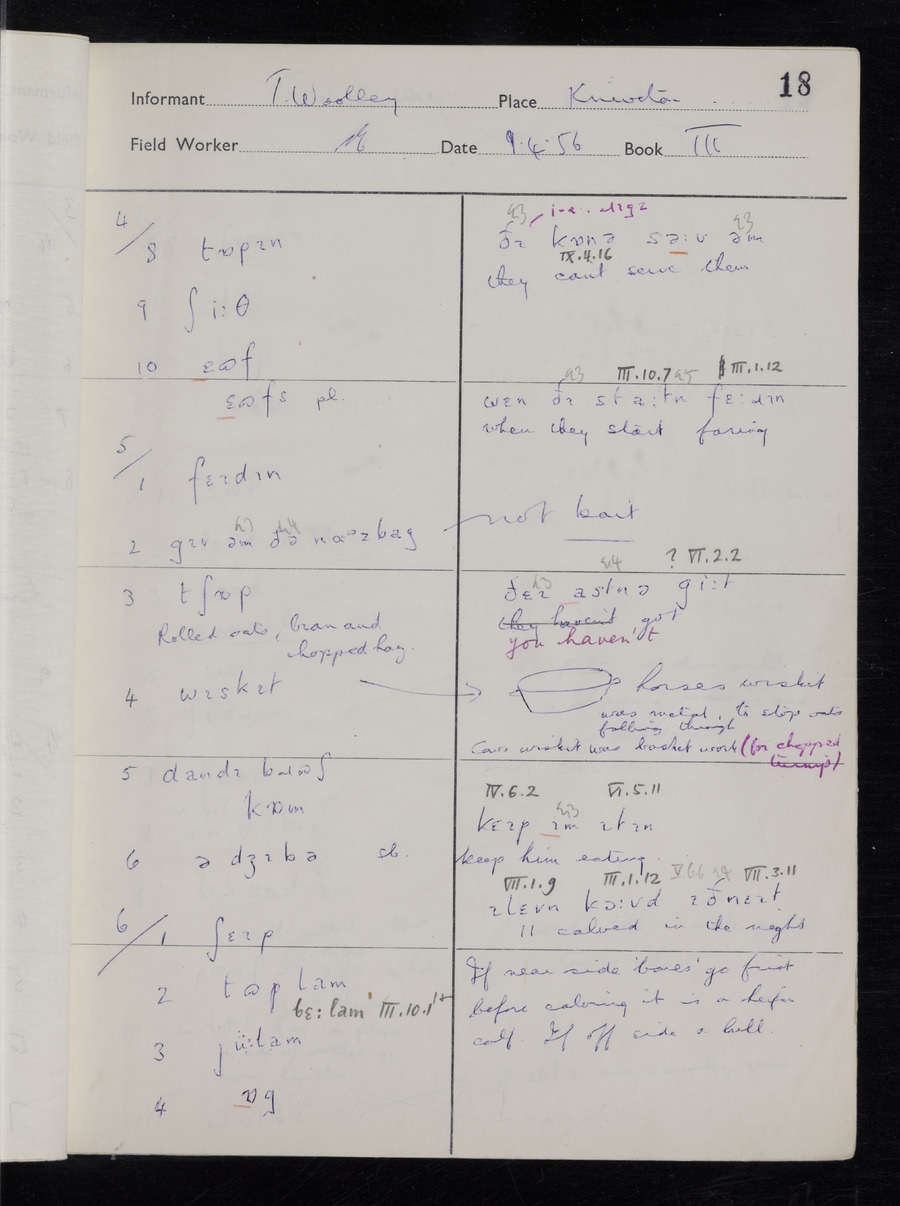 18
Informant T. Woolley Place Kniveton
Field Worker Date 9.4.56 Book III
4/8 tɒpɪn
9 ʃi:θ
10 ɛɷf
ɛɷfs pl.
5/1 fɛɪdɪn
2 gɪv əm ðə
3 tʃɒp
Rolled oats, bran and
chopped hay.
4 wɪskɪt
5 dandɪ
kɒm
6 ə dʒɪbə sb.
6/1 ʃɛɪp
2 tɷp lam
bɛ: lam' III.10.1
3 jü:lam
4 ɒg
q3 q3
ðɪ kɒnə sə:v əm
IX.4.16
they cant serve them
q3 III.10.7 q5 III.1.12
wɛn ðɪ sta:tn fɛ:ɹɪn
when they start faring
not bait
q4 ? VI.2.2
ðɛɪ astnə gi:t
they haven't got
you haven't
horses wisket
was metal, to stop oats
falling through
Cows wisket was basket work (for chopped
turnip)
IV.6.2 VI.5.11
kɛɪp ɪm ɪtɪn
keep him eating.
VII.1.9 III.1.12 V.6.6 q4 VII.3.11
ɪlɛvn kə:vd ɪðnɛɪt
11 calved in the night
If near side 'bones' go first
before calving it is a heifer
calf. If off side a bull.